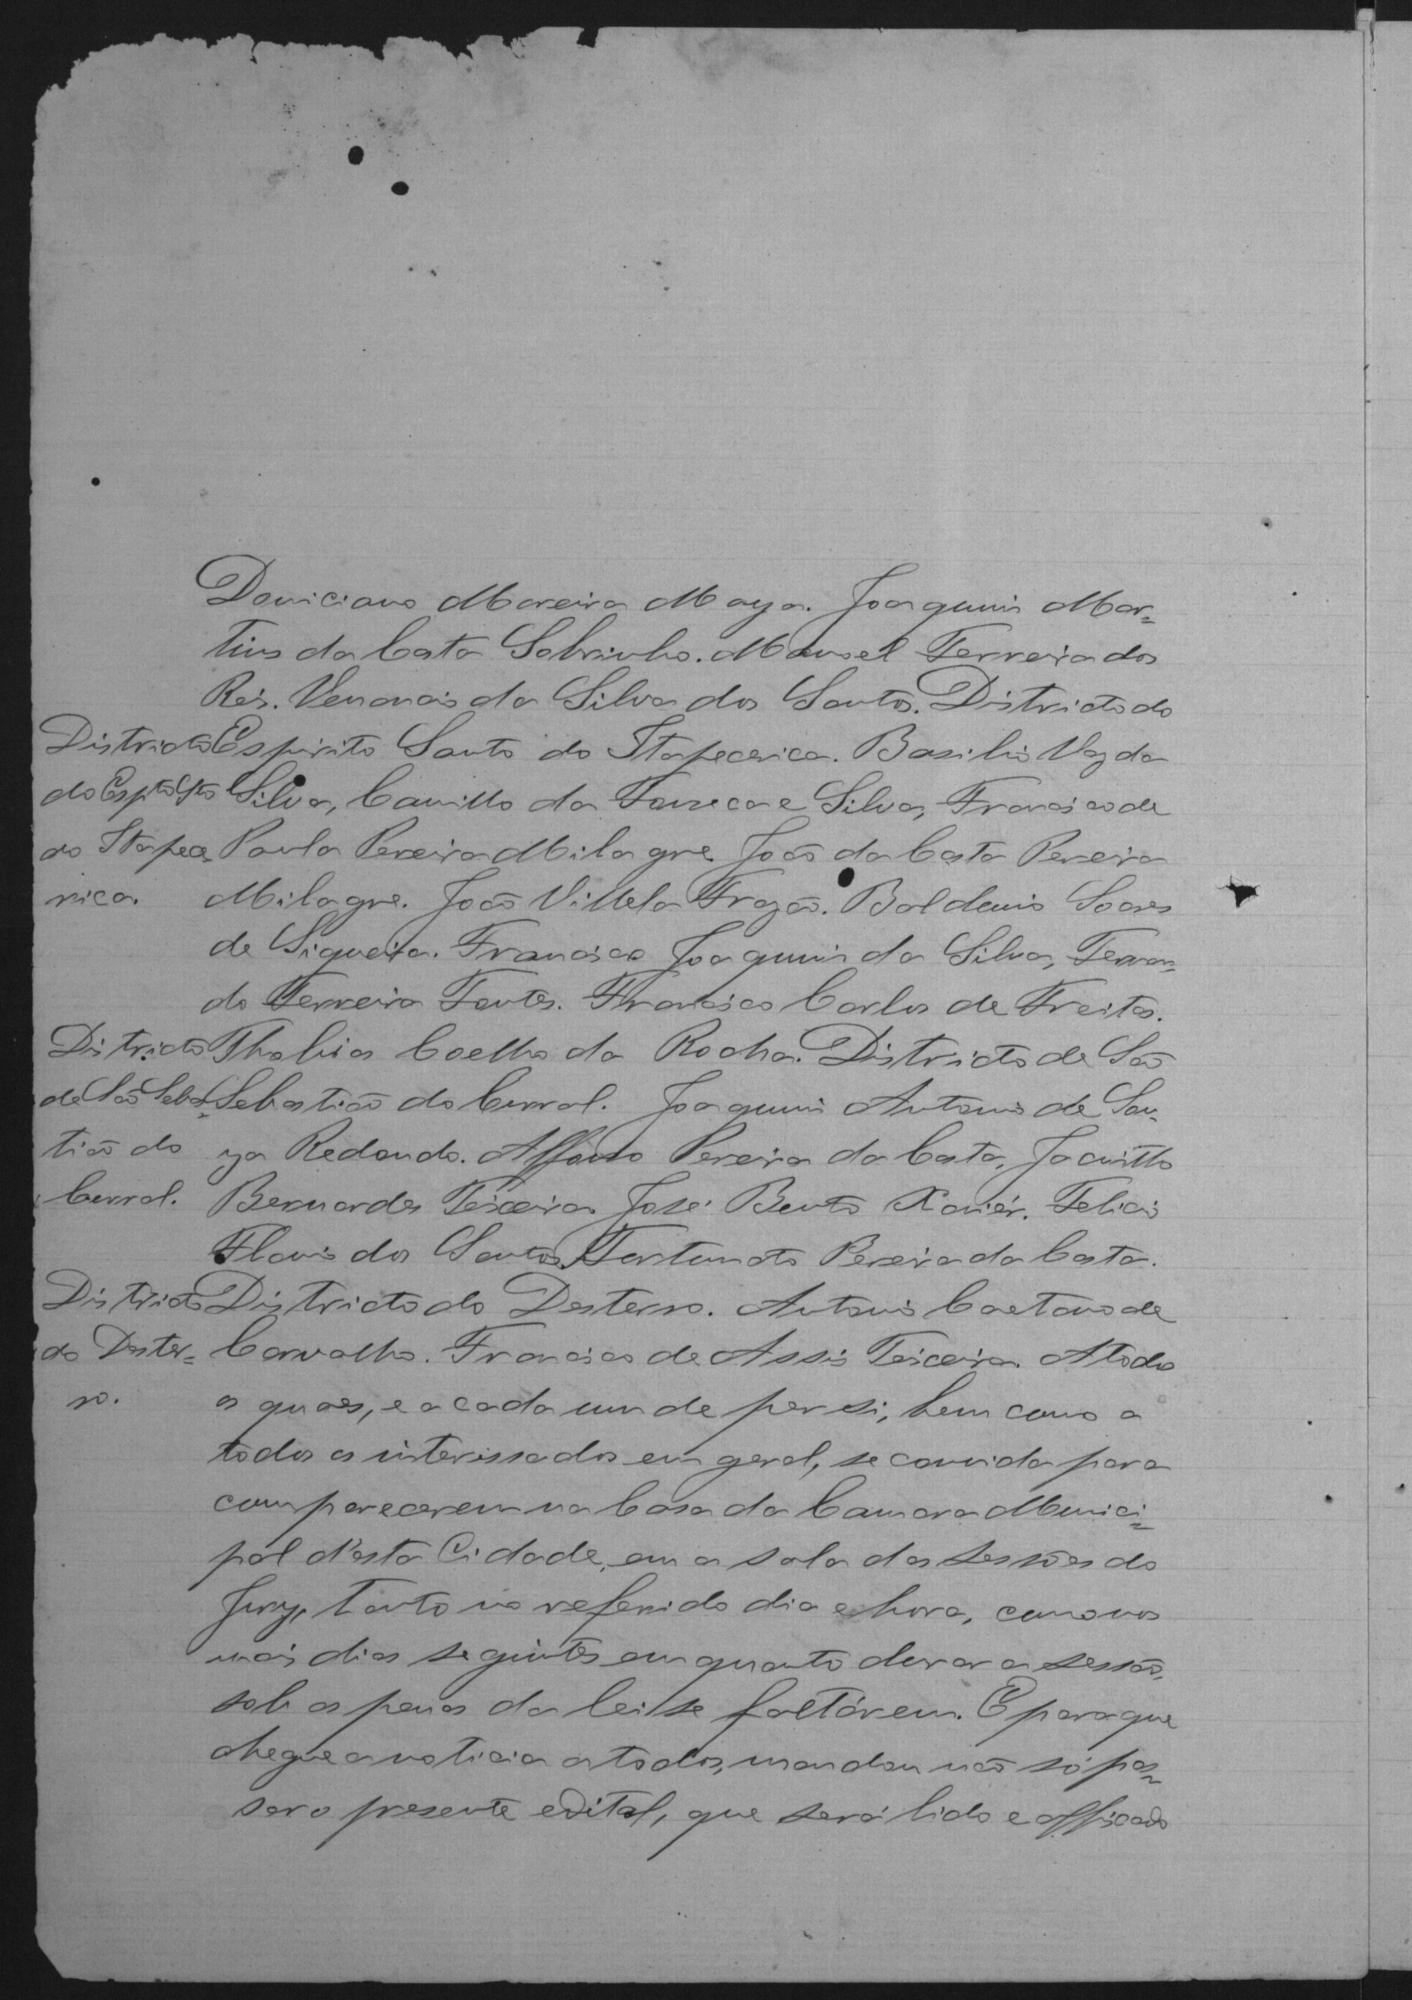 Domiciano Moreira Maya. Joaquim Mar-
tins da Costa Sobrinho. Manoel Ferreira dos
Reis. Venancio da Silva dos Santos. Districto do
Districto
Espirito Santo do Itapecerica. Basilio Vaz da
do Espto Sto
Silva, Camillo da Fonseca e Silva, Francisco de
do Itapece
Paula Pereira Milagre. João da Costa Pereira
rica.
Milagre. João Villela Frazão. Baldoino Soares
de Siqueira. Francisco Joaquim da Silva, Fernan-
do Ferreira Fontes. Francisco Carlos de Freitas.
Districto
Thobias Coelho da Rocha. Districto de São
de São Sebas-
Sebastião do Curral. Joaquim Antonio de Sou-
tião do
za Redondo. Affonso Pereira da Costa, Jacintho
Curral.
Bernardes Teixeira. José Bento Xavier. Felicio
Flavio dos Santos. Fortunato Pereira da Costa.
Districto
Districto do Desterro. Antonio Caetano de
do Dester-
Carvalho. Francisco de Assis Teixeira. A todos
ro.
os quaes, e a cada um de per si, bem como a
todos os interissados em geral, se convida para
comparecerem na Casa da Camara Munici-
pal d'esta Cidade, em a sala das sessões do
Jury, tanto no referido dia e hora, como nos
mais dias seguintes emquanto durar a sessão,
sob as penas da lei se faltárem. E para que
chegue a noticia a todos, mandou não só pas-
sar o presente edital, que será lido e affixado